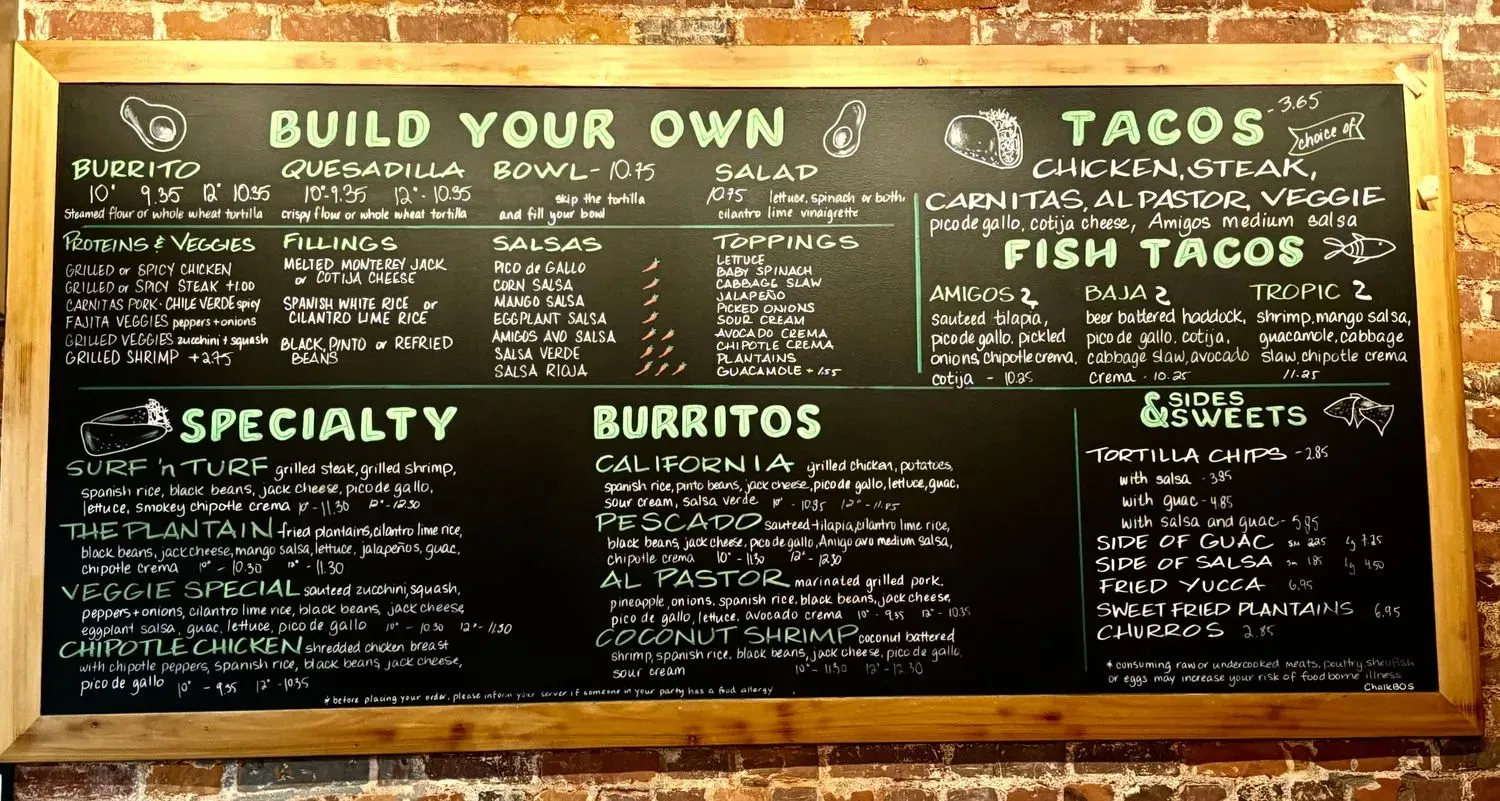 BUILD YOUR OWN
BURRITO
10" 9.35 12" 10.35
Steamed flour or whole wheat tortilla
QUESADILLA
10"-9.35 12"-10.35
crispy flour or whole wheat tortilla
BOWL-10.75
skip the tortilla
and fill your bowl
SALAD
10.75 lettuce, spinach or both,
cilantro lime vinaigrette
PROTEINS & VEGGIES
GRILLED or SPICY CHICKEN
GRILLED or SPICY STEAK +1.00
CARNITAS PORK · CHILE VERDE spicy
FAJITA VEGGIES peppers+onions
GRILLED VEGGIES zucchini+squash
GRILLED SHRIMP +2.75
FILLINGS
MELTED MONTEREY JACK
or COTIJA CHEESE
SPANISH WHITE RICE or
CILANTRO LIME RICE
BLACK, PINTO or REFRIED
BEANS
SALSAS
PICO de GALLO
CORN SALSA
MANGO SALSA
EGGPLANT SALSA
AMIGOS AVO SALSA
SALSA VERDE
SALSA RIOJA
TOPPINGS
LETTUCE
BABY SPINACH
CABBAGE SLAW
JALAPEÑO
PICKED ONIONS
SOUR CREAM
AVOCADO CREMA
CHIPOTLE CREMA
PLANTAINS
GUACAMOLE +1.55
TACOS -3.65
choice of
CHICKEN, STEAK,
CARNITAS, AL PASTOR, VEGGIE
pico de gallo, cotija cheese, Amigos medium salsa
FISH TACOS
AMIGOS 2
sauteed tilapia,
pico de gallo, pickled
onions, chipotle crema,
cotija - 10.25
BAJA 2
beer battered haddock,
pico de gallo, cotija,
cabbage slaw, avocado
crema - 10.25
TROPIC 2
shrimp, mango salsa,
guacamole, cabbage
slaw, chipotle crema
11.25
SPECIALTY BURRITOS
SURF 'n TURF grilled steak, grilled shrimp,
spanish rice, black beans, jack cheese, pico de gallo,
lettuce, smokey chipotle crema 10"-11.30 12"-12.30
THE PLANTAIN -fried plantains, cilantro lime rice,
black beans, jack cheese, mango salsa, lettuce, jalapeños, guac,
chipotle crema 10" - 10.30 12" - 11.30
VEGGIE SPECIAL sauteed zucchini, squash,
peppers+onions, cilantro lime rice, black beans, jack cheese,
eggplant salsa, guac, lettuce, pico de gallo 10" - 10.30 12"- 11.30
CHIPOTLE CHICKEN shredded chicken breast
with chipotle peppers, spanish rice, black beans, jack cheese,
pico de gallo 10" - 9.35 12" -10.35
CALIFORNIA grilled chicken, potatoes,
spanish rice, pinto beans, jack cheese, pico de gallo, lettuce, guac,
sour cream, salsa verde 10" - 10.85 12"
PESCADO sauteed tilapia, cilantro lime rice,
black beans, jack cheese, pico de gallo, Amigo avo medium salsa,
chipotle crema 10" - 11.30 12" - 12.30
AL PASTOR marinated grilled pork,
pineapple, onions, spanish rice, black beans, jack cheese,
pico de gallo, lettuce, avocado crema 10" - 9.35 12" - 10.35
COCONUT SHRIMP coconut battered
shrimp, spanish rice, black beans, jack cheese, pico de gallo,
sour cream 10" - 11.30 12" - 12.30
*before placing your order, please inform your server if someone in your party has a food allergy
SIDES
& SWEETS
TORTILLA CHIPS - 2.85
with salsa - 3.85
with guac - 4.85
with salsa and guac - 5.85
SIDE OF GUAC sm 2.25 Lg 7.25
SIDE OF SALSA sm 1.85 Lg 4.50
FRIED YUCCA 6.95
SWEET FRIED PLANTAINS 6.95
CHURROS 2.85
*consuming raw or undercooked meats, poultry shellfish
or eggs may increase your risk of food borne illness
ChalkBOS